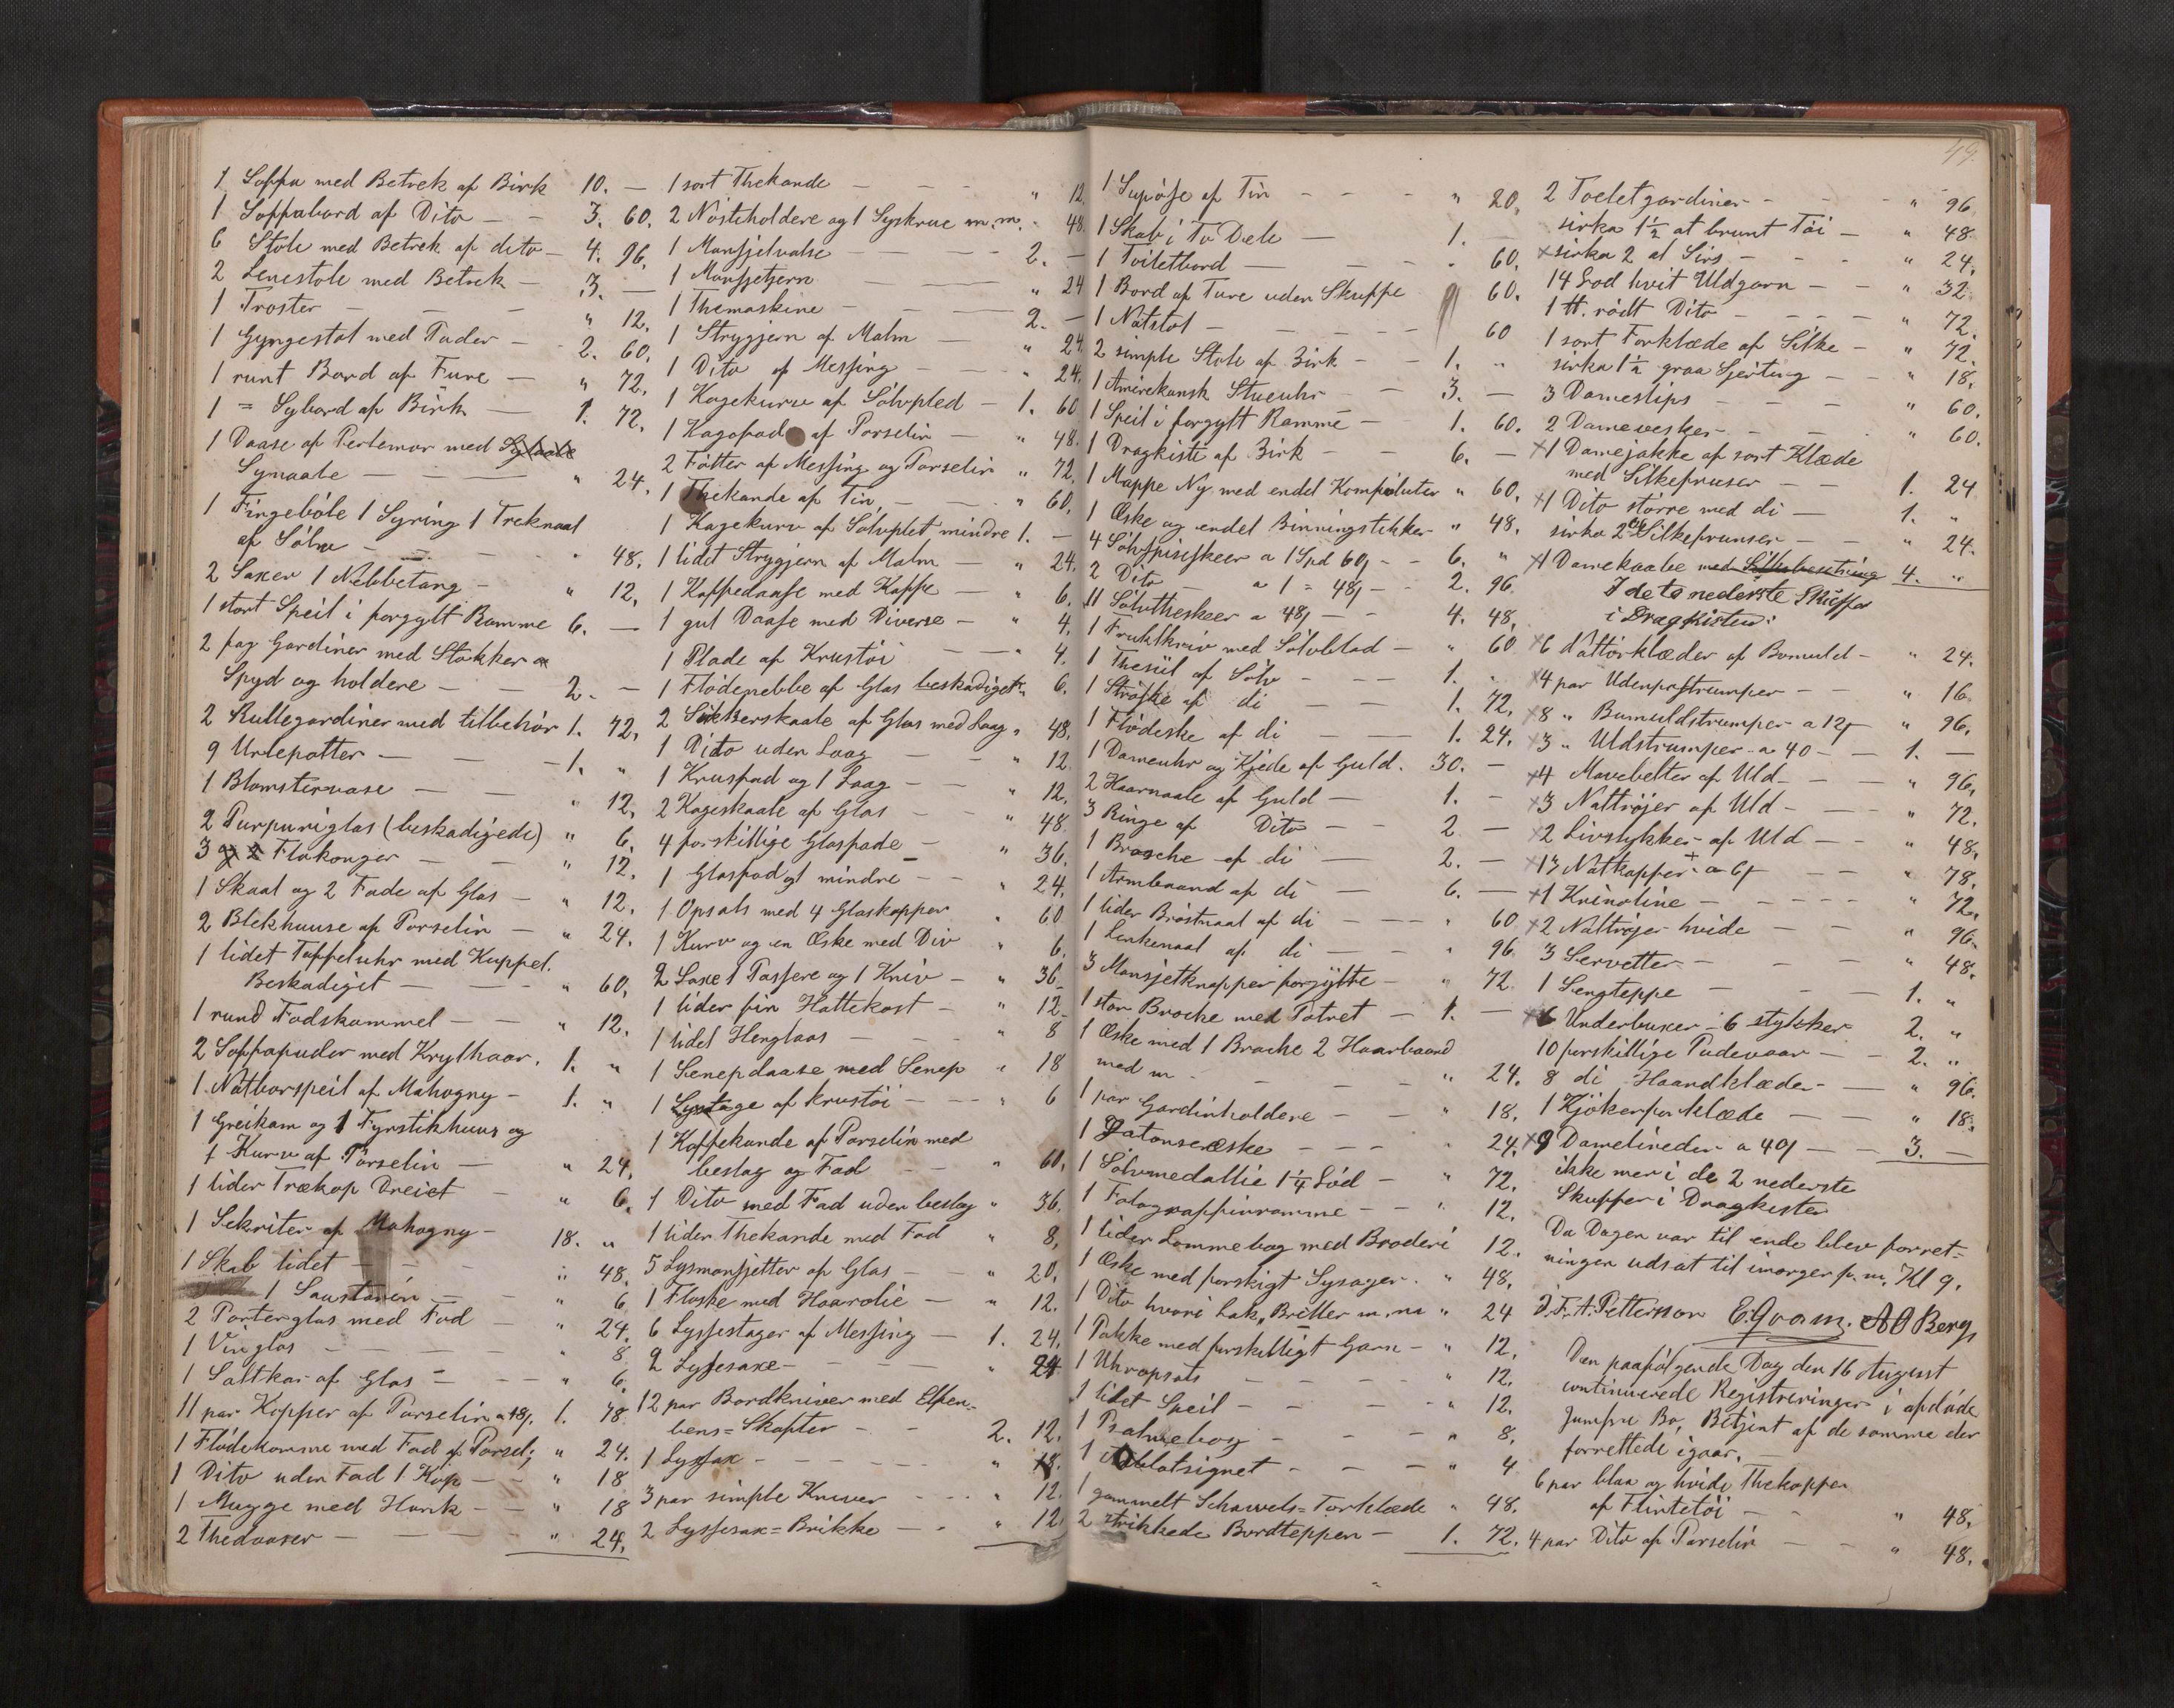 1 Soffa med Betrek af Birk 10. —
1 Soffabord af Dito — - 3. 60.
6 Stole med Betrek af dito — 4. 96.
2 Lenestole med Betrek — 3. —
1 Troster — — — " 12.
1 Gyngestol med Puder — - 2. 60.
1 runt Bord af Fure — " 72.
1 = Sybord af Birk — 1. 72.
1 Daase af Perlemor med
Synaale — — " 24.
1 Fingebøle 1 Syring 1 Treknaal
af Sølv — — - " 48.
2 Saxer 1 Nebbetang - " 12.
1 stort Speil i forgylt Ramme 6. —
2 fag Gardiner med Stokker
Spyd og holdere — — 2. —
2 Rullegardiner med tilbehør 1. 72.
9 Urtepotter — — — 1. "
1 Blomstervase — — " 12.
2 Purpuriglas (beskadigede) " 6.
3 Flakonger — — " 12.
1 Skaal og 2 Fade af Glas — " 12.
2 Blekhuuse af Porselin — " 24.
1 lidet Taffeluhr med Kuppel.
Beskadiget — — - " 60.
1 rund Fodskammel — — " 12.
2 Soffapuder med Krylhaar. 1. "
1 Natborspeil af Mahogny - 1. "
1 Greikam og 1 Fyrstikhuus og
1 Kurv af Porselin — " 24.
1 liden Trækop Dreiet — " 6.
1 Sekriter af Mahogny — 18. "
1 Skab lidet — - " 48.
1 — — " 6.
2 Porterglas med Fod — " 24.
1 Vinglas — — — " 8.
1 Saltkar af Glas — — " 6.
11 par Kopper af Porselin a 18 1. 78.
1 Flødekomme med Fad af Porsel; " 24.
1 Dito uden Fad 1 Kop — " 18
1 Mugge med Hank — — " 18
2 Thedaaser — — — " 24.
1 sort Thekande — - — " 12.
2 Nøsteholdere og 1 Syskrue m. m. - 48.
1 Mansjetvalse — — — 2. —
1 Mansjetjern — — " 24
1 Themaskine — — — 2. —
1 Strygjern af Malm — " 24.
1 Dito af Messing — — " 24.
1 Kagekurv af Sølvpled — 1. 60
1 Kagefad af Porselin — " 48.
2 Føtter af Messing og Porselin " 72.
1 Thekande af Tin — — " 60.
1 Kagekurv af Sølvplet mindre 1. —
1 lidet Strygjern af Malm — " 24.
1 Kaffedaase med Kaffe — " 6.
1 gul Daase med Diverse — " 4.
1 Plade af Krustøi — — " 4.
1 Flødenebbe af Glas beskadiget " 6.
2 Sukkerskaale af Glas med Laag " 48.
1 Dito uden Laag — - " 12.
1 Krusfad og 1 Laag — — " 12.
2 Kageskaale af Glas — — " 48
4 forskillige Glasfade — " 36.
1 Glasfad mindre — - " 24.
1 Opsats med 4 Glaskopper " 60
1 Kurv og en Æske med Div " 6.
2 Saxe 1 Passere og 1 Kniv — " 36
1 liden fin Hattekost — " 12
1 lidet Henglaas — — " 8
1 Senepdaase med Senep " 18
1 Lystage af krustøi — - " 6
1 Kaffekande af Porselin med
beslag og Fad — — " 60.
1 Dito med Fad uden beslag " 36.
1 liden Thekande med Fad " 8.
5 Lysmansjetter af Glas — " 20.
1 Flaske med Haarolie — " 12.
6 Lyssestager af Messing — 1. 24.
2 Lyssesaxe — — — " 24
12 par Bordkniver med Elfen-
bens=Skafter — - 2. 12.
1 Lyssax - — — — " 18.
3 par simple Kniver — - " 12.
2 Lyssesax=Brikke — - " 12.
49.
1 Supøse af Tin - - - " 20.
1 Skab i To Dele — 1. —
1 Toiletbord — — - " 60.
1 Bord af Fure uden Skuffe 60.
1 Natstol — - - - 60
2 simple Stole af Birk — 1. "
1 Amerekansk Stueuhr — 3. —
1 Speil i forgylt Ramme — 1. 60.
1 Dragkiste af Birk — - 6. —
1 Mappe Ny med endel Konvoluter " 60.
1 Æske og endel Binningstikker " 48.
4 Sølvspiseskeer a 1 Spd 60 - 6. "
2 Dito a 1 = 48 — 2. 96.
11 Sølvtheskeer a 48 — - 4. 48.
1 Frukkniv med Sølvblad — " 60
1 Thesiil af Sølv — - 1. "
1 Strøske af di — — 1. 72.
1 Flødeske af di — — 1. 24.
1 Dameuhr og Kjede af Guld. 30. —
2 Haarnaale af Guld — 1. -
3 Ringe af Dito — - 2 —
1 Brosche af di — 2. —
1 Armbaand af di — 6. —
1 liden Brøstnaal af di — — " 60
1 Lenkenaal af di — — " 96
3 Mansjetknapper forgyldte — " 72
1 stor Broche med Potret — 1. —
1 Æske med 1 Broche 2 Haarbaand
med m - - - - " 24.
1 par Gardinholdere — - " 18.
1 Patonseæske — - - " 24.
1 Sølvmedallie 1 1/4 Lod — " 72.
1 Fotografiramme - - " 12.
1 liden Lommebog med Broderi 12.
1 Æske med forskigt Sysager. " 48.
1 Dito hvori Lak, Briller m. m " 24
1 Pakke med forskelligt Garn — " 12.
1 Uhropsats - - - " 12.
1 lidet Speil — - - " 12.
1 Psalmebog - - - " 8.
1 Oblatsignet - - - " 4
1 gammelt Schawels=Tørklæde " 48.
2 strikkede Bordteppen — 1. 72.
2 Toeletgardiner — - - " 96
sirka 1 1/2 al brunt Tøi — " 48
× sirka 2 al Sirs - - " 24.
14 Lod hvit Uldgarn — - " 32
1 ℔. rødt Dito — - - " 72.
1 sort Forklæde af Silke — " 72.
sirka 1 1/2 graa Sjerting — " 18.
3 Dameslips - - - " 60.
2 Damevesker - - - " 60.
× 1 Damejakke af sort Klæde
med Silkefruser — - 1. 24
× 1 Dito større med di — 1. "
sirka 2 al Silkefrunser — - " 24.
× 1 Damekaabe med Silkebesetning 4. "
I de to nederste Skuffer
i Dragkisten:
× 6 Nattørklæder af Bomuld - " 24.
× 4 par Udenpastrømper — - " 16.
× 8 " Bomuldstrømper a 12 " 96.
× 3 " Uldstrømper a 40 — 1. —
× 4 Mavebelter af Uld — — " 96.
× 3 Nattrøjer af Uld — — " 72.
× 2 Livstykker af Uld — - " 48.
× 13 Natkapper a 6 - " 78.
× 1 Krinoline — - - - " 72.
× 2 Nattrøjer hvide — - " 96.
3 Servetter — - - " 48.
1 Sengteppe — - — 1. "
× 6 Underbuxer - 6 stykker 2. "
10 forskillige Pudevaar — - 2. "
8 di Haandklæde — — " 96.
1 Kjøkenforklæde — — " 18.
× 9 Damelineder a 40 — - 3. —
ikke mer i de 2 nederste
Skuffer i Dragkisten
Da Dagen var til ende blev forret-
ningen udsat til imorgen f. m. Kl 9.
J. F. A. Pettersson E. Qvam. A O Berg
Den paafølgende Dag den 16 August
continuerede Registreringen i afdøde
Jumfru Bo, Betjent af de samme der
forrettede igaar. —
6 par blaa og hvide Thekopper
af Flintetøi — - " 48.
4 par Dito af Porselin — - " 48.